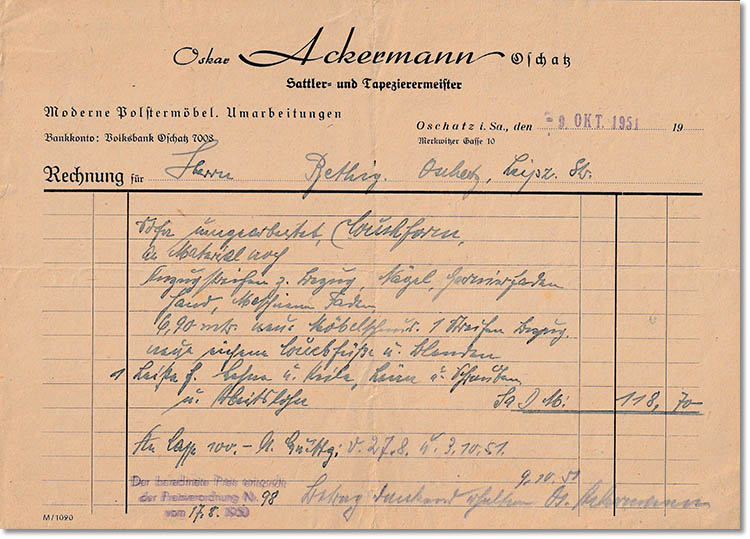 Oskar Ackermann Oschatz
Sattler- und Tapezierermeister
Moderne Polstermöbel. Umarbeitungen
Bankkonto: Volksbank Oschatz 7008
Oschatz i. Sa., den 9. OKT. 1951 19
Merkwitzer Gasse 10
Rechnung für Herrn Rethig. Oschatz, Leipz. Str.
Sofa umgearbeitet, Couchform,
a. Material noch
Bezug, Nägel, Garnierfaden
Faden
6,90 mtr. neue 1 Streifen Bezug.
neue Couchfüße u. Blenden
1 Leiste f. Lehne u. Keile, Leim u. Schrauben
u. Arbeitslohn Sa D M: 118,70
100.- v. 27.8. u. 3.10.51.
Der berechnete Preis entspricht
der Preisverordnung Nr. 98
vom 17.8. 1950
9.10.51
Betrag dankend erhalten Os. Ackermann
M/1090